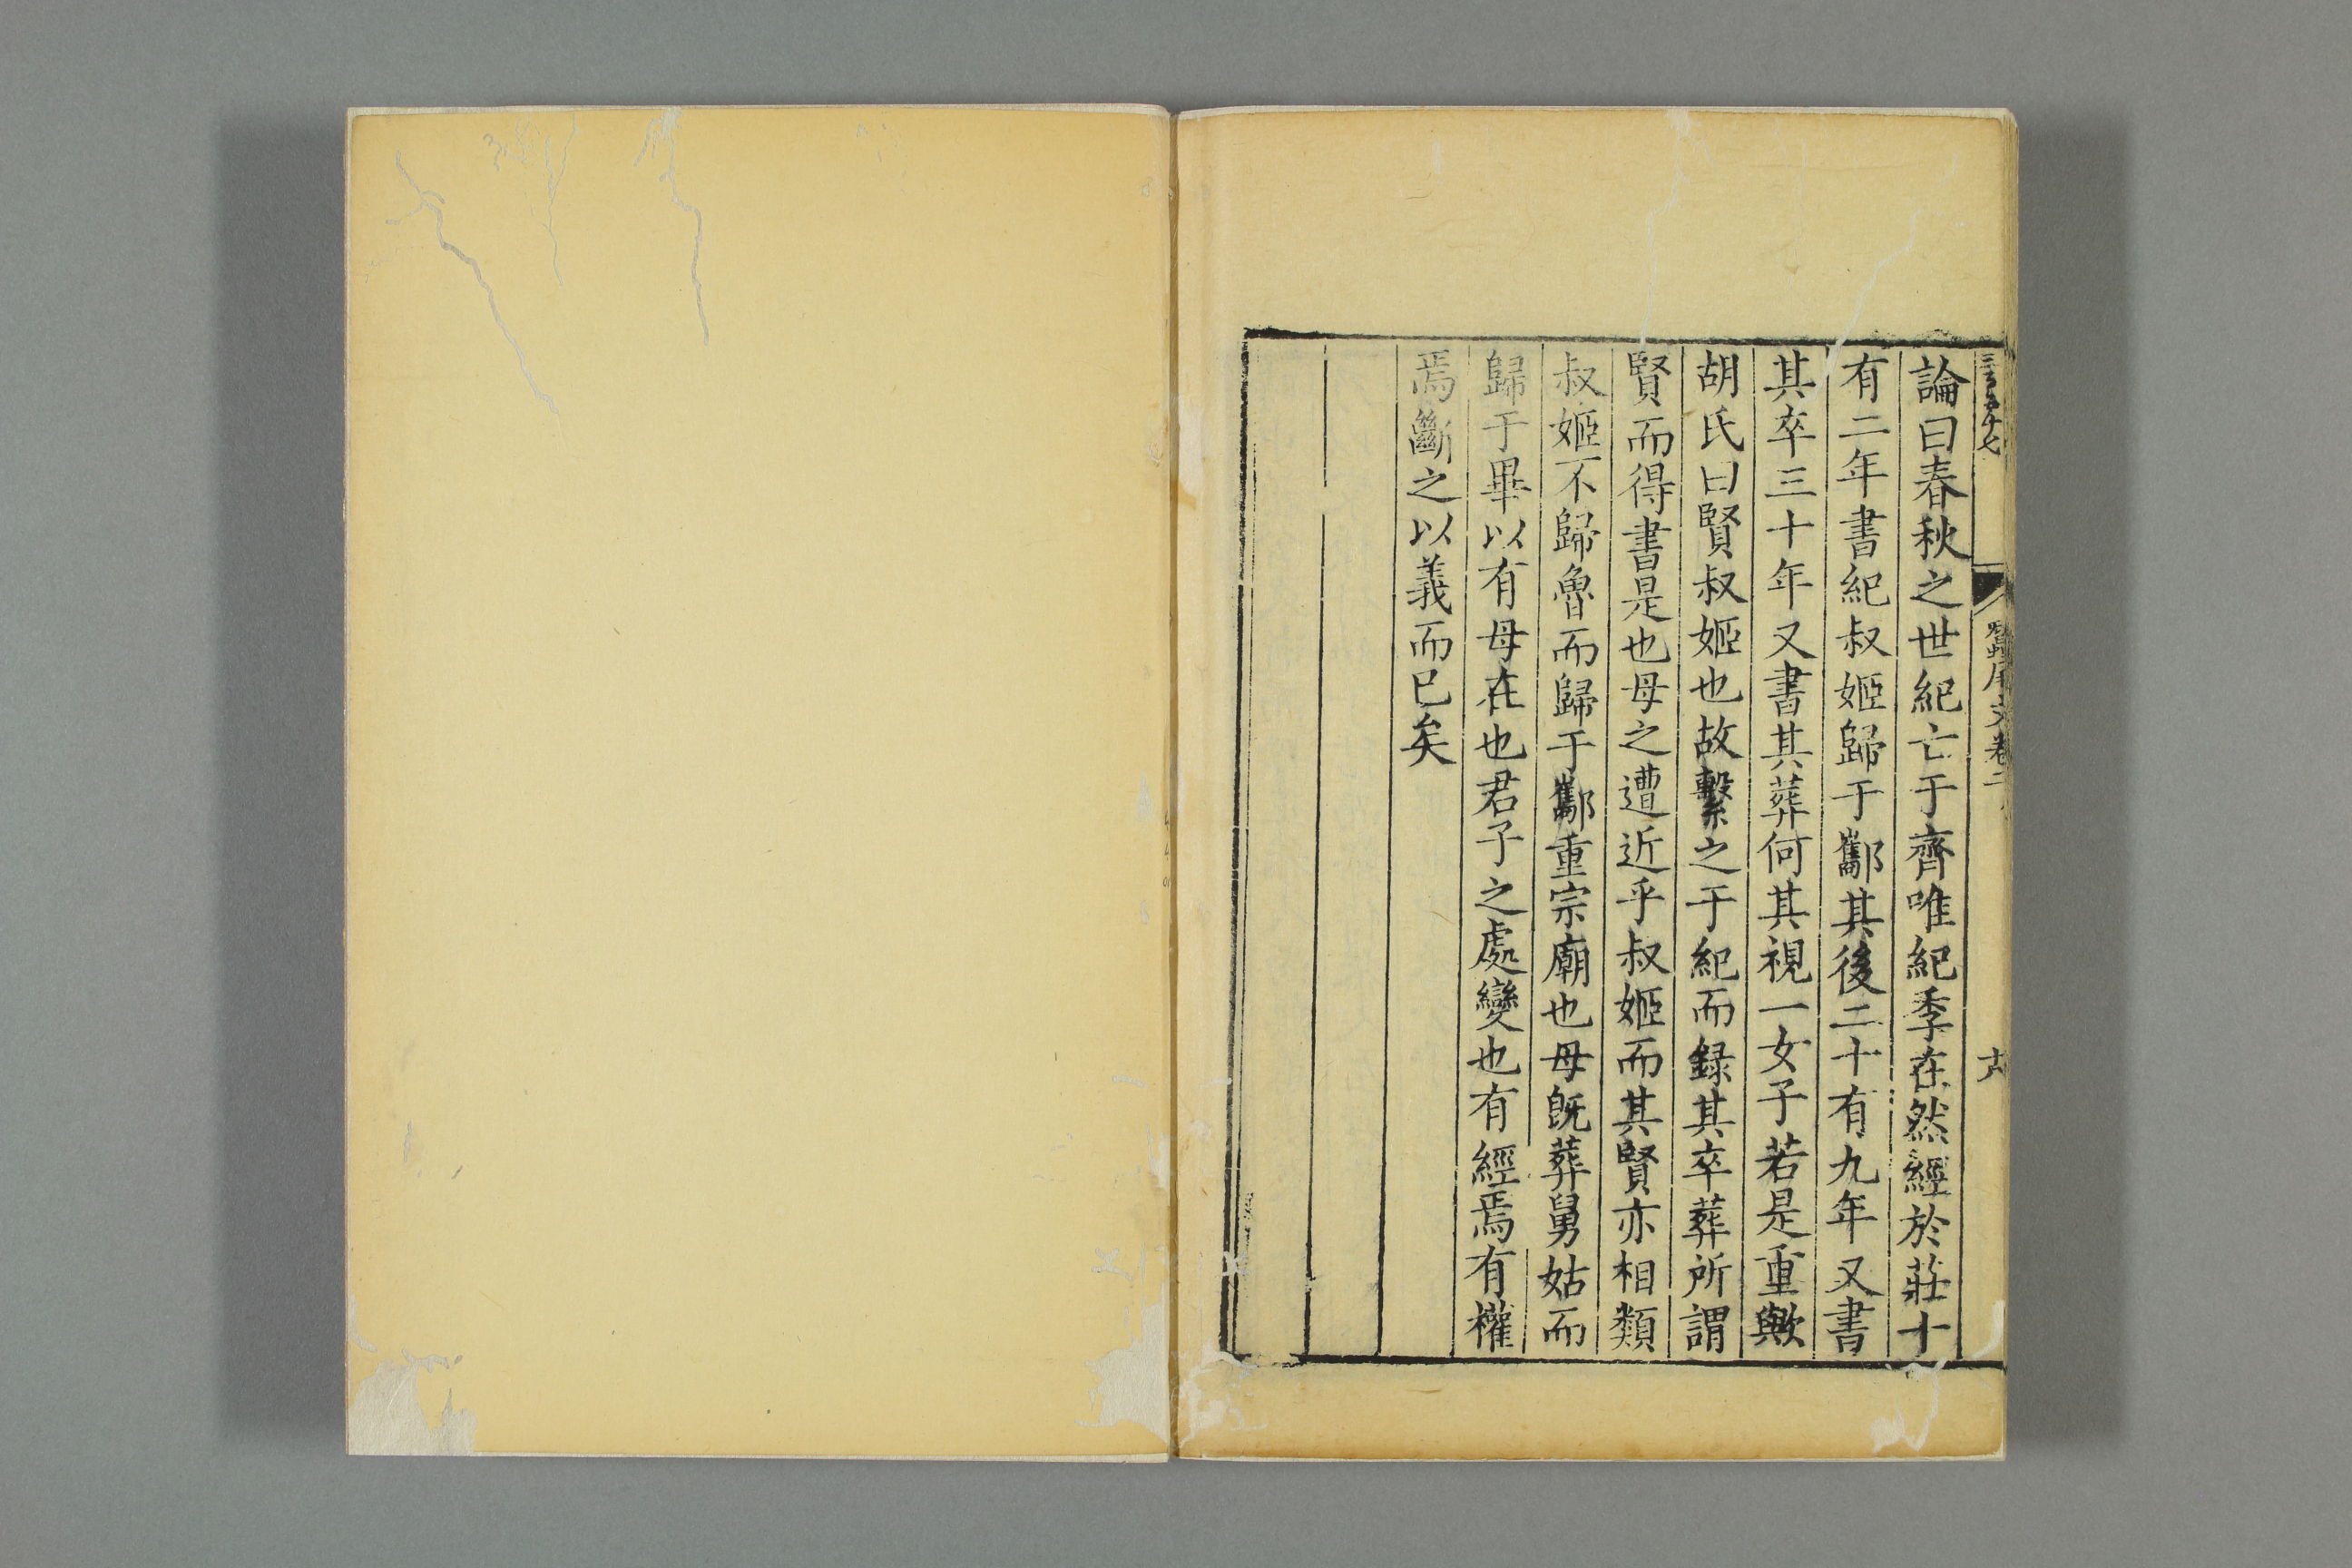 蠶尾文卷二
論曰春秋之世紀亡于齊唯紀季在然經於莊十
有二年書紀叔姬歸于酅其後二十有九年又書
其卒三十年又書其葬何其視一女子若是重歟
胡氏曰賢叔姬也故繫之于紀而録其卒葬所謂
賢而得書是也母之遭近乎叔姬而其賢亦相類
叔姬不歸魯而歸于酅重宗廟也母旣葬舅姑而
歸于畢以有母在也君子之處變也有經焉有權
焉斷之以義而已矣